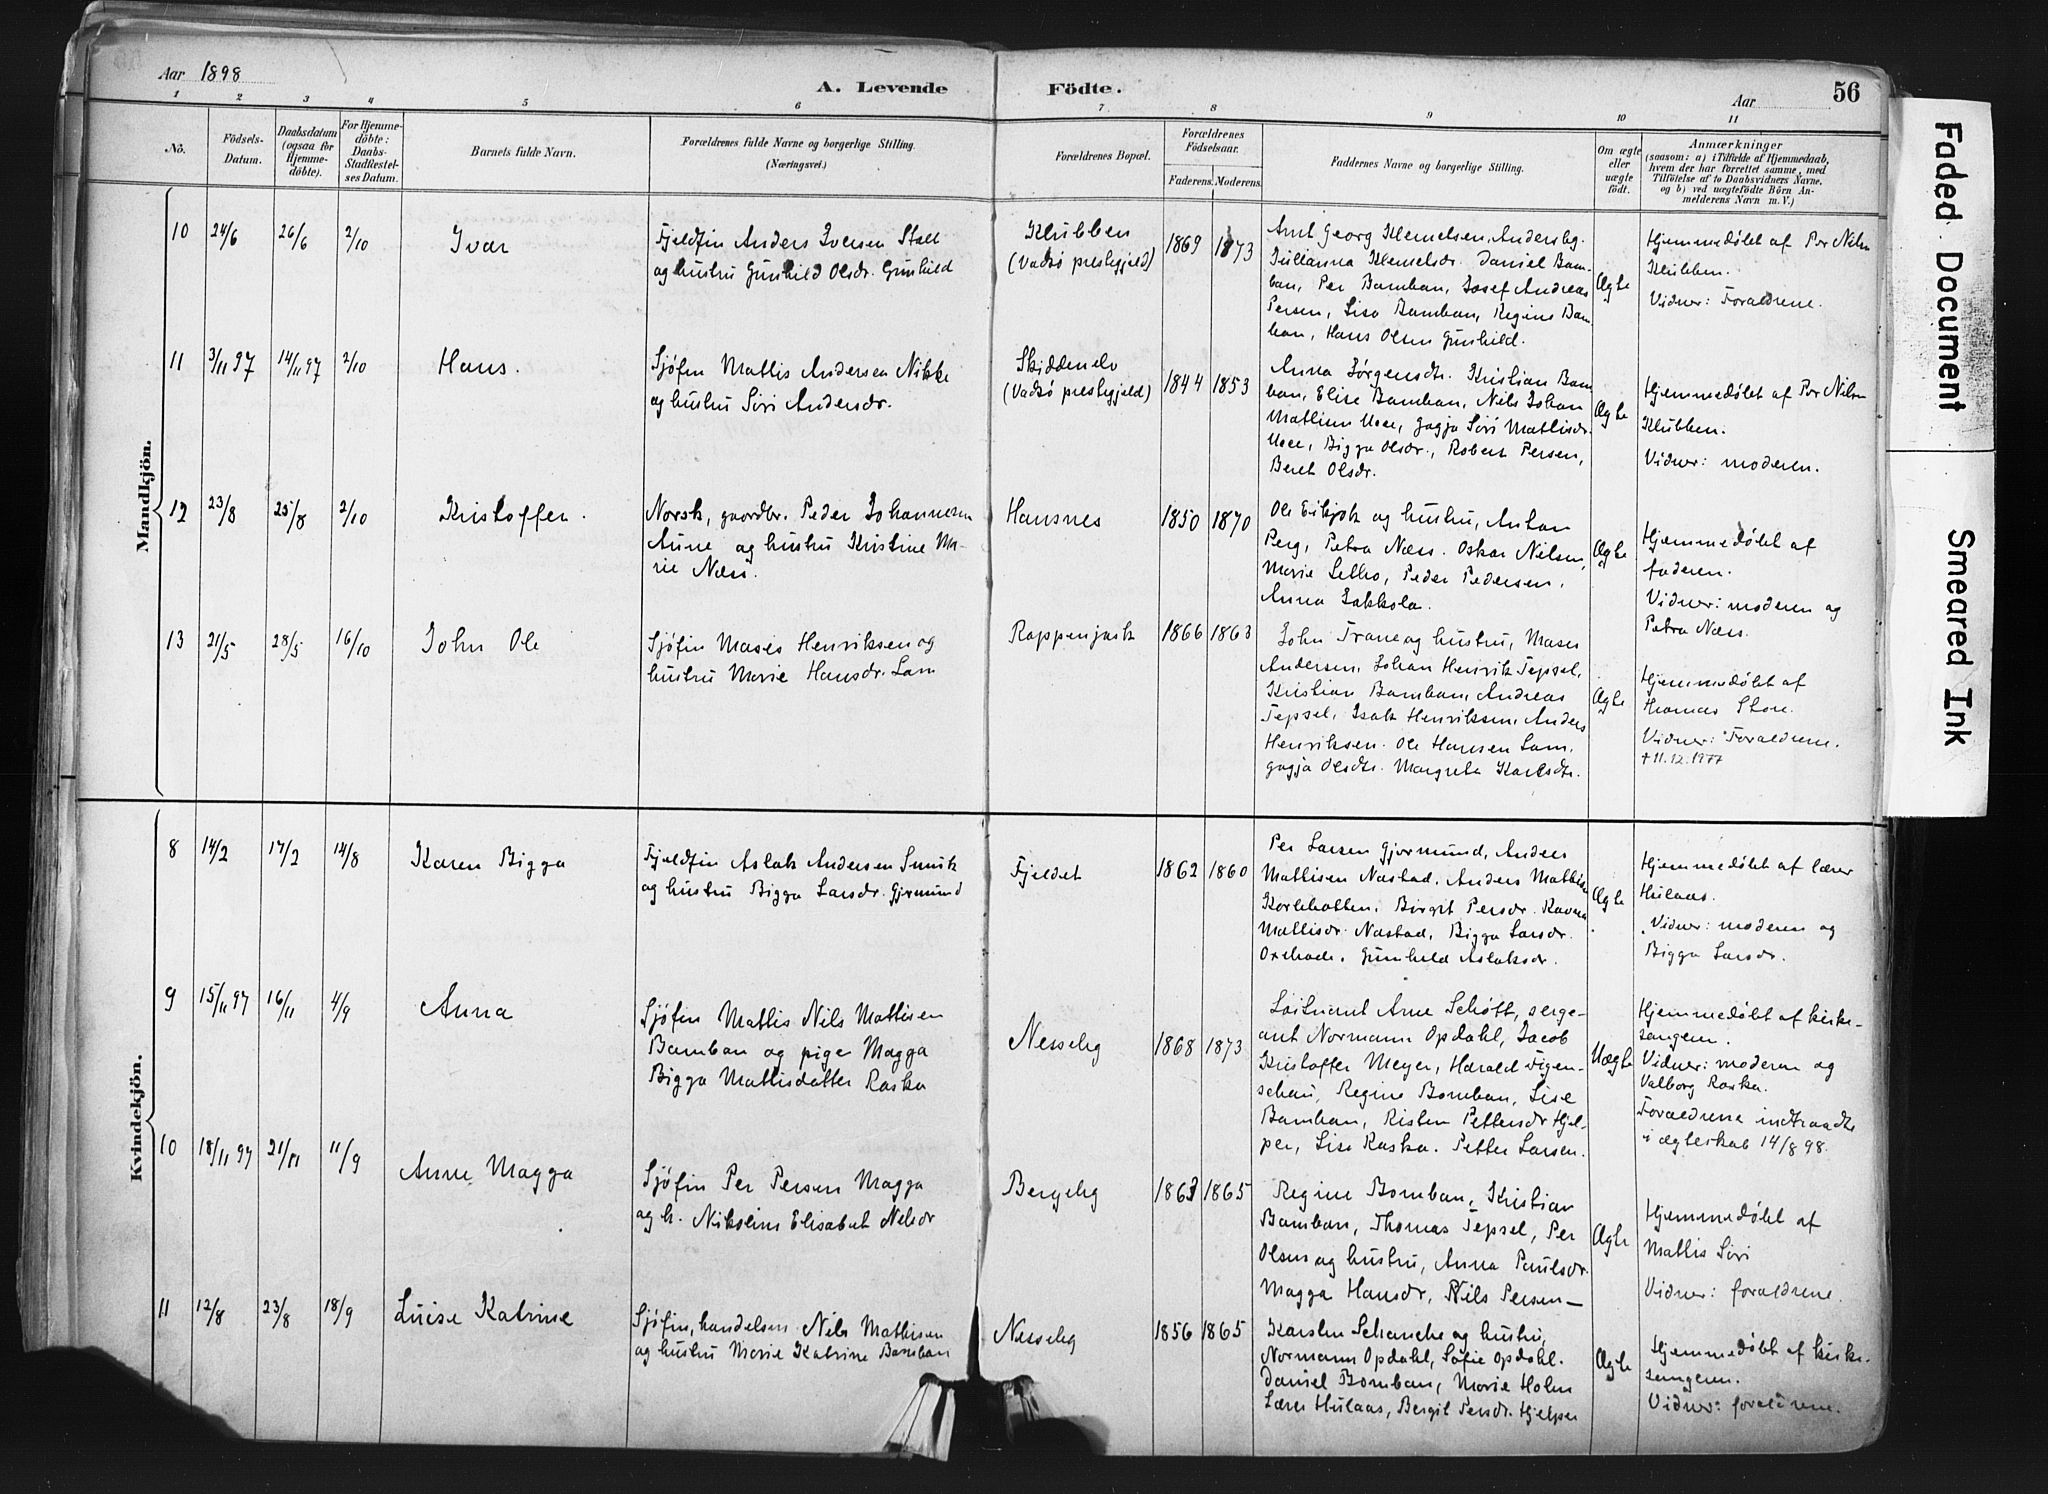 Aar 1898
A. Levende Födte.
Aar
56
1 2 3 4 5 6 7 8 9 10 11
No.
Födsels-
Datum.
Daabsdatum
(ogsaa for
Hjemme-
döbte).
For Hjemme-
döbte:
Daabs-
Stadfæstel-
ses Datum.
Barnets fulde Navn.
Forældrenes fulde Navne og borgerlige Stilling.
(Næringsvei.)
Forældrenes Bopæl.
Forældrenes
Födselsaar.
Faderens. Moderens.
Faddernes Navne og borgerlige Stilling.
Om ægte
eller
uægte
födt.
Anmærkninger
(saasom: a) i Tilfælde af Hjemmedaab,
hvem der har forrettet samme, med
Tilföielse af to Daabsvidners Navne,
og b) ved uægtefödte Börn An-
melderens Navn m. V.)
Mandkjön.
10 24/6 26/6 2/10
Ivar
Fjeldfin Anders Iversen Stall
og hustru Gunhild Olsdr. Gunhild
Klubben
(Vadsö prestegjeld)
1869 1873
Amt Georg Klemetsen, Andersby.
Julianna Klemetsdr. Daniel Bom-
ban, Per Bamban, Josef Andreas
Persen, Lisa Bamban, Regine Bam-
ban, Hans Olsen Gunhild.
Ægte
Hjemmedøbt af Per Nilsen
Klubben.
Vidner: Forældrene.
11 3/11 97 14/11 97 2/10
Hans.
Sjøfin Mattis Andersen Nikke
og hustru Siri Andersdr.
Skiddenelv
(Vadsö prestegjeld)
1844 1853
Anna Jørgensdtr. Kristian Bam-
ban, Elise Bamban, Nils Johan
Mathisen, Gagja Siri Mattisdr.
Bigga Olsdr., Robert Persen,
Beret Olsdr.
Ægte
Hjemmedøbt af Per Nilsen
Klubben.
Vidner: moderen.
12 23/8 25/8 2/10
Kristoffer.
Norsk, gaardbr. Peder Johannesen
Aune og hustru Kristine Ma-
rie Næss.
Hansnes
1850 1870
Ole Eikjok og hustru, Anton
Berg, Petra Næss. Oskar Nilsen,
Marie Letho, Peder Pedersen,
Anna Jakkola.
Ægte
Hjemmedøbt af
faderen.
Vidner: moderen og
Petra Næss.
13 21/5 28/5 16/10
John Ole
Sjøfin Moses Henriksen og
hustru Marie Hansdr. Lam
Roppenjark
1866 1863
John Trane og hustru, Moses
Andersen, Johan Henrik Tepsel,
Kristian Bamban, Andreas
Tepsel, Isak Henriksen, Anders
Henriksen. Ole Hansen Lam.
Gagja Olsdtr. Margreta Karlsdtr.
Ægte
Hjemmedøbt af
Thomas Store.
Vidner: Forældrene.
+ 11.12.1977
Kvindekjön.
8 14/2 17/2 14/8
Karen Bigga
Fjeldfin Aslak Andersen Smuk
og hustru Bigga Larsdr. Gjermund
Fjeldet
1862 1860
Per Larsen Gjermund, Anders
Mattisen Nastad, Anders Mattisen
Kortehatten. Birgit Persdr. Ravna
Mattisdr. Nastad, Bigga Larsdr.
Gunhild Aslaksdr.
Ægte
Hjemmedøbt af lærer
Hulaas.
Vidner: moderen og
Bigga Larsdr.
9 15/11 97 16/11 4/9
Anna
Sjøfin Mattis Nils Mattisen
Bamban og pige Magga
Bigga Mattisdatter Raska
Nesseby
1868 1873
Løitnant Arne Schøtt, serge-
ant Normann Opdahl, Jacob
Kristoffer Meyer, Harald Figen-
schau, Regine Bomban, Lise
Bamban, Risten Pettersdr Hjel-
per, Lise Raska. Petter Larsen.
Uægte
Hjemmedøbt af kirke-
sangeren.
Vidner: moderen og
Valborg Raska.
Forældrene indtraadte
i ægteskab 14/8 98.
10 18/11 97 21/11 11/9
Anne Magga
Sjøfin Per Persen Magga
og h. Nikoline Elisabet Nilsdr
Bergeby
1863 1865
Regine Bomban, Kristian
Bamban, Thomas Tepsel, Per
Olsen og hustru, Anna Paulsdr.
Magga Hansdr, Nils Persen—
Ægte
Hjemmedøbt af
Mattis Siri
Vidner: forældrene.
11 12/8 23/8 18/9
Luise Katrine
Sjøfin, handelsm. Nils Mathisen
og hustru Marie Katrine Bamban
Nesseby
1856 1865
Karsten Schanche og hustru,
Normann Opdahl, Sofie Opdahl.
Daniel Bomban, Marie Holm
Lærer Hulaas, Bergit Persdr. Hjelper
Ægte
Hjemmedøbt af kirke-
sangeren.
Vidner: forældrene.
Faded Document
Smeared Ink